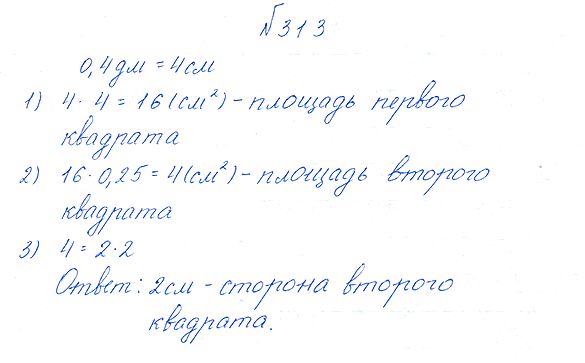 №313
0,4дм = 4см
1) 4 · 4 = 16 (см²) - площадь первого
квадрата
2) 16 · 0,25 = 4 (см²) - площадь второго
квадрата
3) 4 = 2 · 2
Ответ: 2см - сторона второго
квадрата.